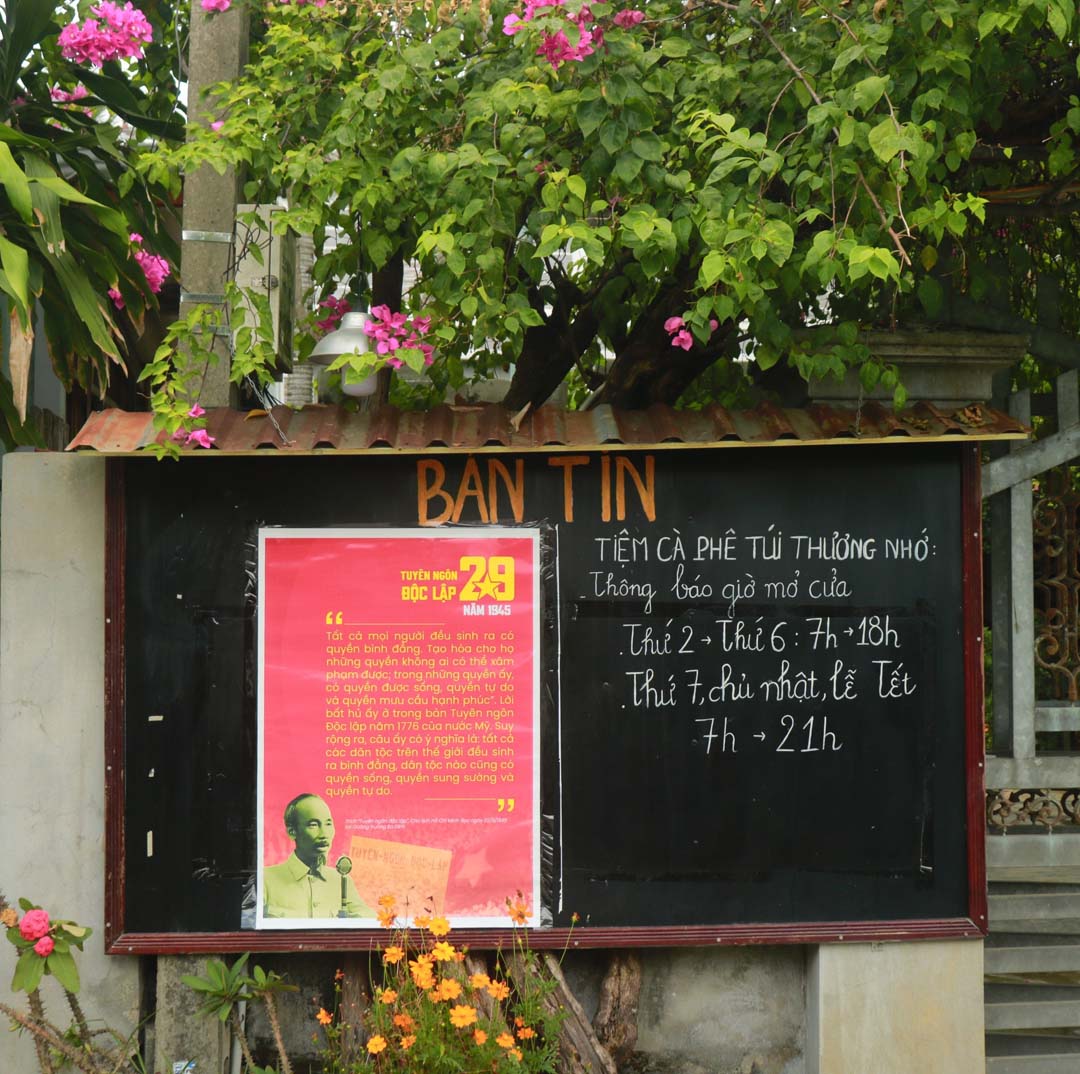 BẢN TIN
TUYÊN NGÔN
ĐỘC LẬP
2★9
NĂM 1945
“
Tất cả mọi người đều sinh ra có
quyền bình đẳng. Tạo hóa cho họ
những quyền không ai có thể xâm
phạm được; trong những quyền ấy,
có quyền được sống, quyền tự do
và quyền mưu cầu hạnh phúc”. Lời
bất hủ ấy ở trong bản Tuyên ngôn
Độc lập năm 1776 của nước Mỹ. Suy
rộng ra, câu ấy có ý nghĩa là: tất cả
các dân tộc trên thế giới đều sinh
ra bình đẳng, dân tộc nào cũng có
quyền sống, quyền sung sướng và
quyền tự do.
”
TUYÊN-NGÔN ĐỘC-LẬP
TIỆM CÀ PHÊ TÚI THƯƠNG NHỚ:
- Thông báo giờ mở cửa
. Thứ 2 → Thứ 6 : 7h → 18h
. Thứ 7, chủ nhật, lễ Tết
7h → 21h